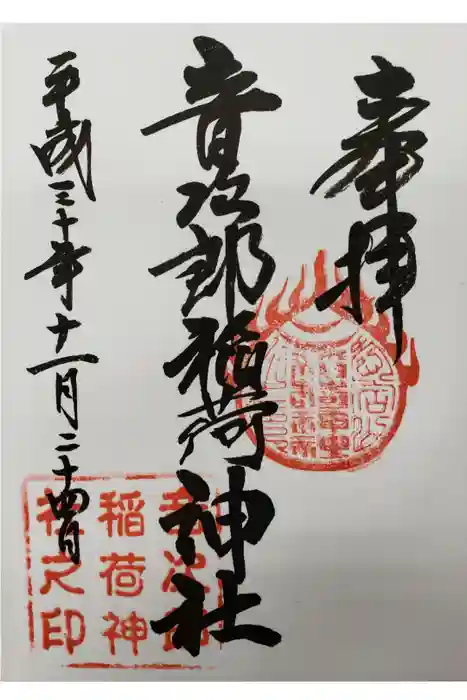 奉拝
音次郎稲荷神社
平成三十年十一月二十四日
音次郎
稲荷神
社之印